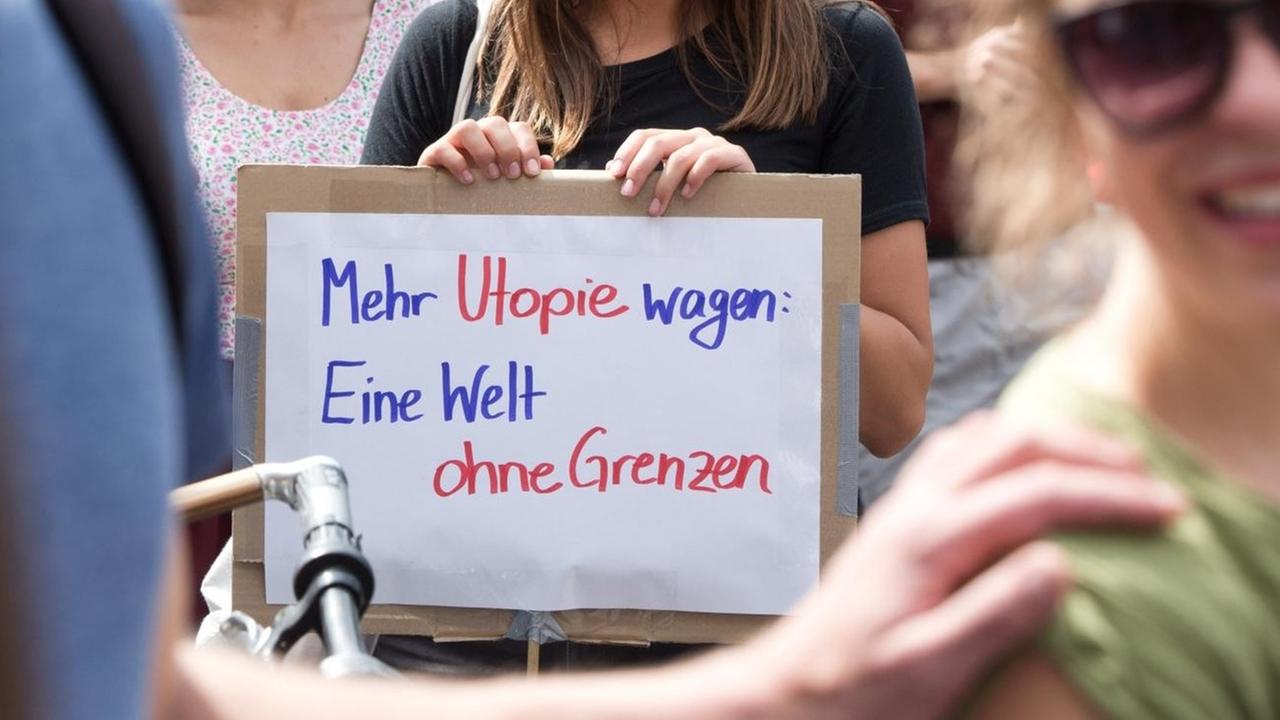 Mehr Utopie wagen:
Eine Welt
ohne Grenzen